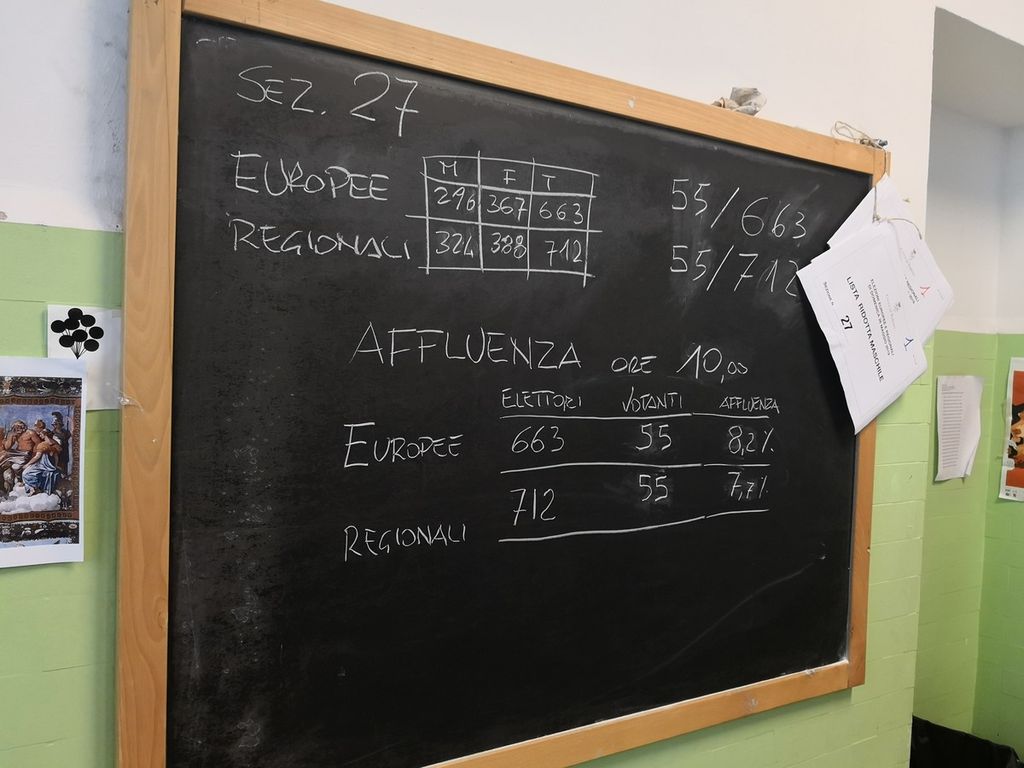 SEZ. 27
M F T
EUROPEE 296 367 663
REGIONALI 324 388 712
55/663
55/712
AFFLUENZA ORE 10,00
ELETTORI VOTANTI AFFLUENZA
EUROPEE 663 55 8,2%
REGIONALI 712 55 7,7%
1
1
LISTA RIDOTTA MASCHILE
27